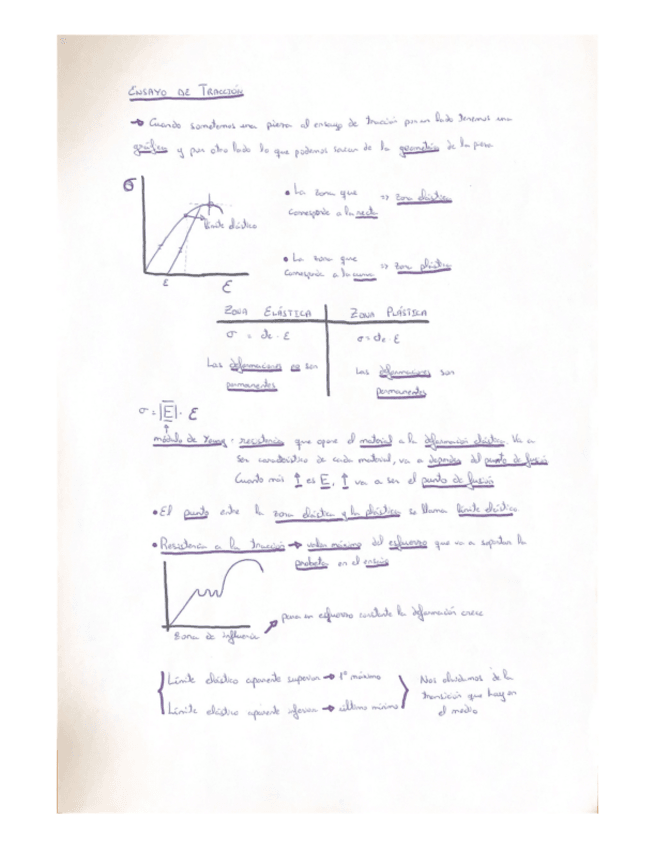 ENSAYO DE TRACCIÓN
→ Cuando sometemos una pieza al ensayo de tracción por un lado tenemos una
gráfica y por otro lado lo que podemos sacar de la geometría de la pieza
σ
límite elástico
ε
ε
• La zona que corresponde a la recta => zona elástica
• La zona que corresponde a la curva => zona plástica
ZONA ELÁSTICA
σ = cte · ε
Las deformaciones no son
permanentes
ZONA PLÁSTICA
σ = cte · ε
Las deformaciones son
permanentes
σ = E · ε
↑
módulo de Young: resistencia que opone el material a la deformación elástica. Va a
ser característico de cada material, va a depender del punto de fusión
Cuanto más ↑ es E, ↑ va a ser el punto de fusión
• El punto entre la zona elástica y la plástica se llama límite elástico.
• Resistencia a la tracción → valor máximo del esfuerzo que va a soportar la
probeta en el ensayo
zona de
para un esfuerzo constante la deformación crece
Límite elástico aparente superior → 1º máximo
Límite elástico aparente inferior → último mínimo
Nos olvidamos de la
transición que hay en
el medio